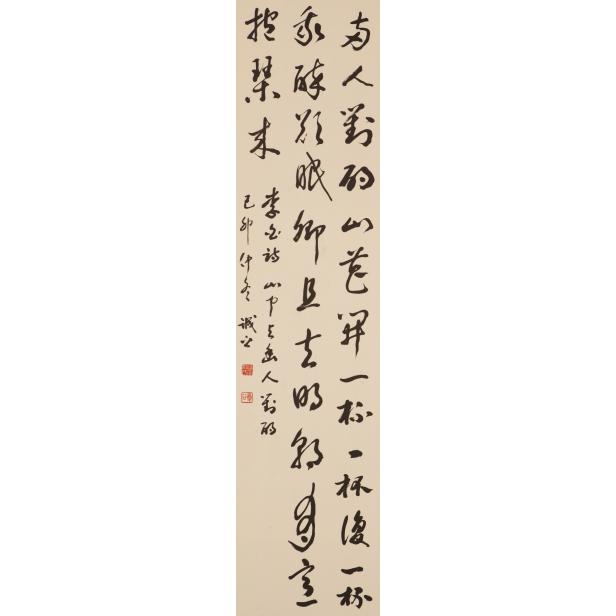 兩人對酌山花開一杯一杯復一杯
我醉欲眠卿且去明朝有意
抱琴來
李白詩 山中与幽人對酌
己卯仲冬 誠